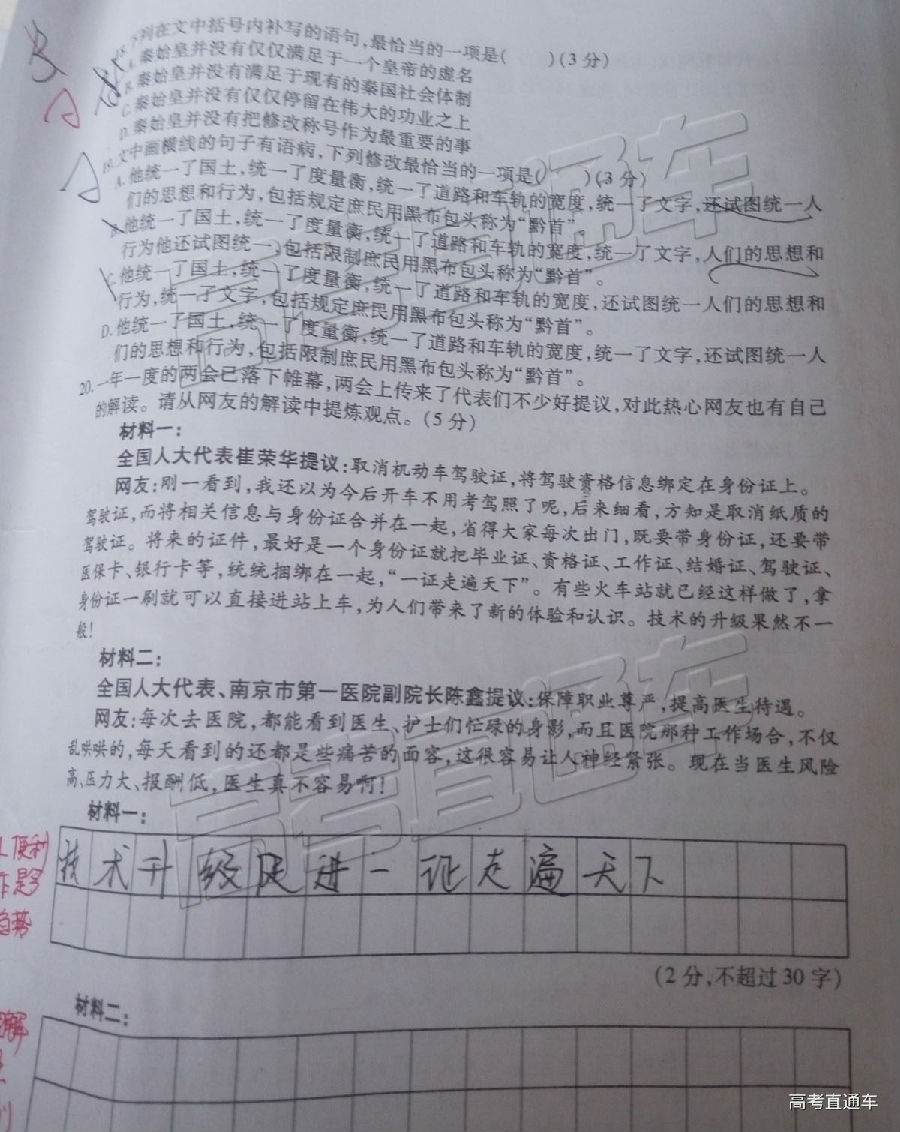 18.下列在文中括号内补写的语句,最恰当的一项是(　　)(3分)
A.秦始皇并没有仅仅满足于一个皇帝的虚名
B.秦始皇并没有满足于现有的秦国社会体制
C.秦始皇并没有仅仅停留在伟大的功业之上
D.秦始皇并没有把修改称号作为最重要的事
19.文中画横线的句子有语病,下列修改最恰当的一项是(　　)(3分)
A.他统一了国土,统一了度量衡,统一了道路和车轨的宽度,统一了文字,还试图统一人
们的思想和行为,包括规定庶民用黑布包头称为“黔首”。
B.他统一了国土,统一了度量衡,统一了道路和车轨的宽度,统一了文字,人们的思想和
行为他还试图统一,包括限制庶民用黑布包头称为“黔首”。
C.他统一了国土,统一了度量衡,统一了道路和车轨的宽度,还试图统一人们的思想和
行为,统一了文字,包括规定庶民用黑布包头称为“黔首”。
D.他统一了国土,统一了度量衡,统一了道路和车轨的宽度,统一了文字,还试图统一人
们的思想和行为,包括限制庶民用黑布包头称为“黔首”。
20.一年一度的两会已落下帷幕,两会上传来了代表们不少好提议,对此热心网友也有自己
的解读。请从网友的解读中提炼观点。(5分)
材料一:
全国人大代表崔荣华提议:取消机动车驾驶证,将驾驶资格信息绑定在身份证上。
网友:刚一看到,我还以为今后开车不用考驾照了呢,后来细看,方知是取消纸质的
驾驶证,而将相关信息与身份证合并在一起,省得大家每次出门,既要带身份证,还要带
驾驶证。将来的证件,最好是一个身份证就把毕业证、资格证、工作证、结婚证、驾驶证、
医保卡、银行卡等,统统捆绑在一起,“一证走遍天下”。有些火车站就已经这样做了,拿
身份证一刷就可以直接进站上车,为人们带来了新的体验和认识。技术的升级果然不一
般!
材料二:
全国人大代表、南京市第一医院副院长陈鑫提议:保障职业尊严,提高医生待遇。
网友:每次去医院,都能看到医生、护士们忙碌的身影,而且医院那种工作场合,不仅
乱哄哄的,每天看到的还都是些痛苦的面容,这很容易让人神经紧张。现在当医生风险
高、压力大、报酬低,医生真不容易啊!
材料一:
便利
趋势
技术升级促进一证走遍天下
(2分,不超过30字)
材料二:
解
高考直通车
高考直通车
高考直通车